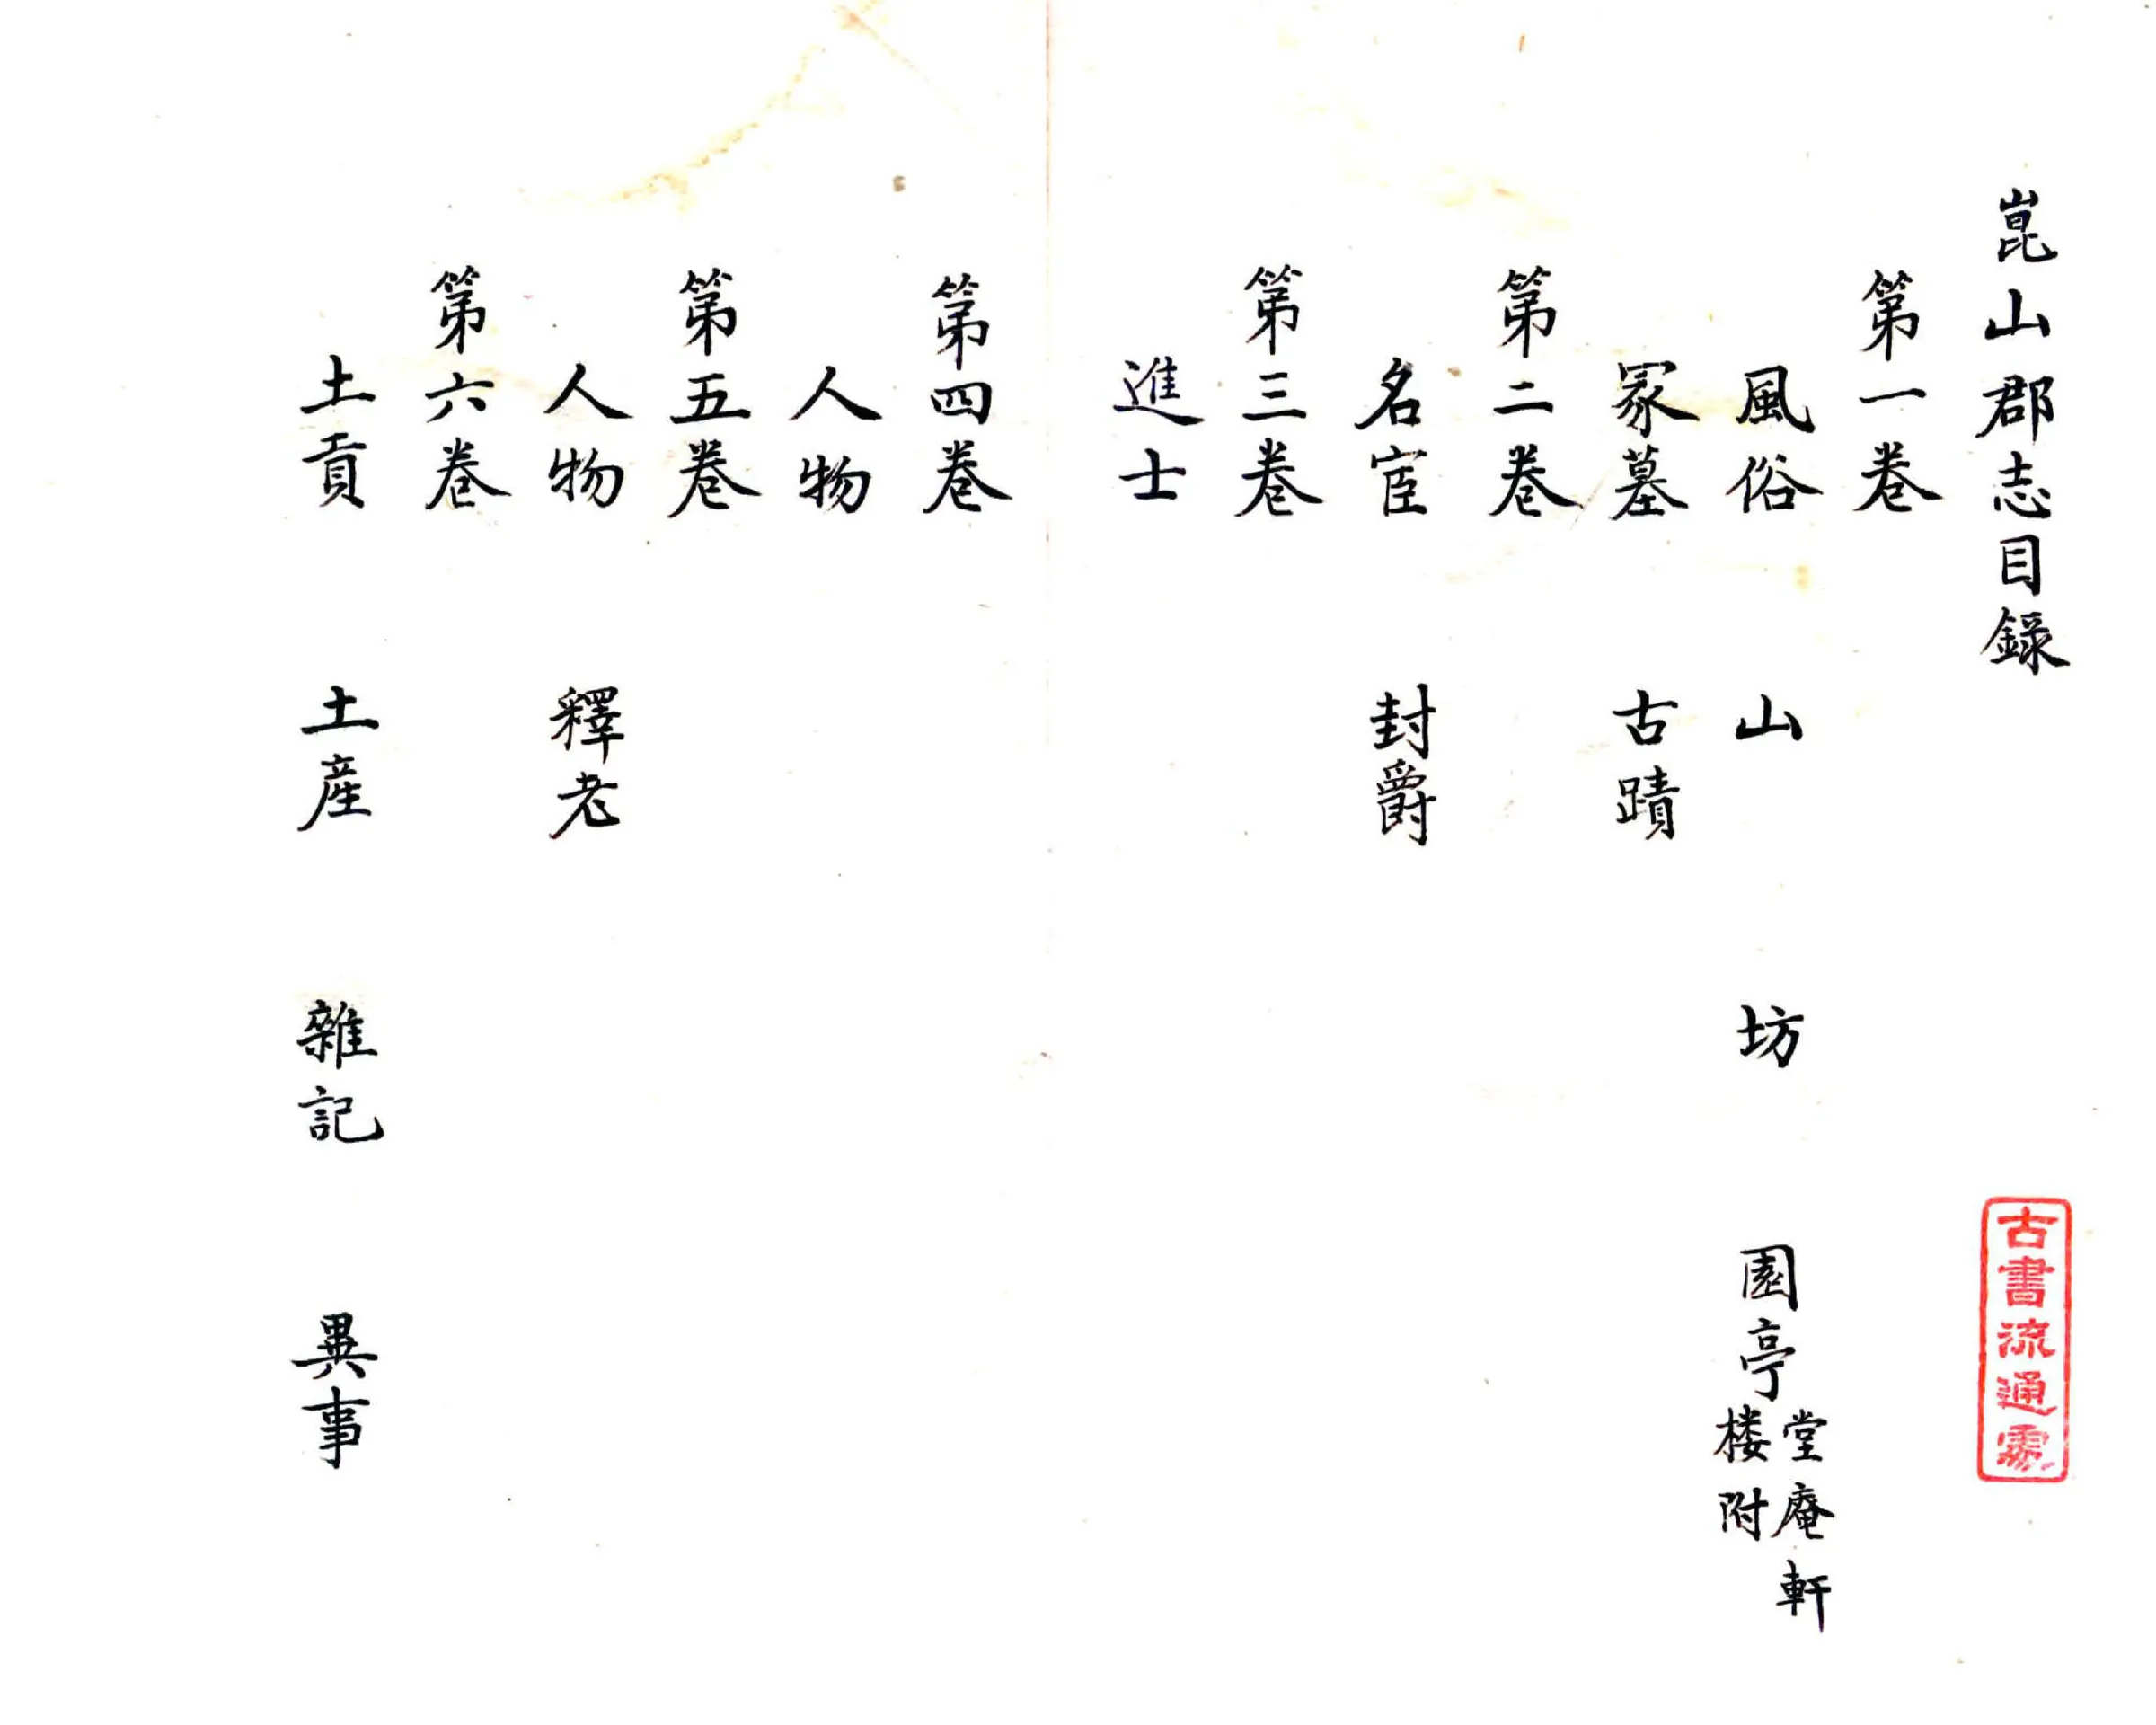 崑山郡志目錄
古書流通處
第一卷
風俗 山 坊 園亭 堂庵軒楼附
冢墓 古蹟
第二卷
名宦 封爵
第三卷
進士
第四卷
人物
第五卷
人物 釋老
第六卷
土貢 土産 雜記 異事